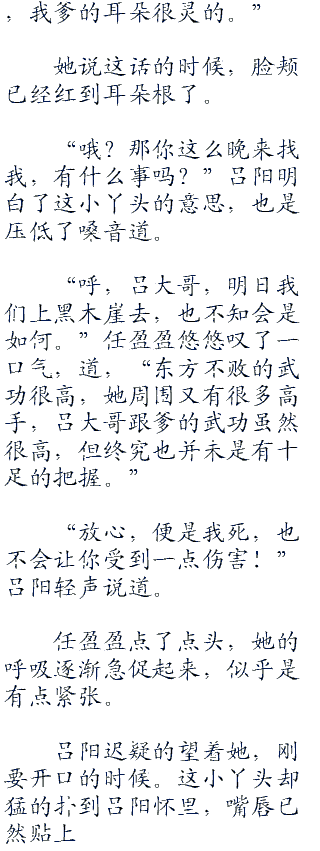 ，我爹的耳朵很灵的。”
她说这话的时候，脸颊
已经红到耳朵根了。
“哦？那你这么晚来找
我，有什么事吗？”吕阳明
白了这小丫头的意思，也是
压低了嗓音道。
“呼，吕大哥，明日我
们上黑木崖去，也不知会是
如何。”任盈盈悠悠叹了一
口气，道，“东方不败的武
功很高，她周围又有很多高
手，吕大哥跟爹的武功虽然
很高，但终究也并未是有十
足的把握。”
“放心，便是我死，也
不会让你受到一点伤害！”
吕阳轻声说道。
任盈盈点了点头，她的
呼吸逐渐急促起来，似乎是
有点紧张。
吕阳迟疑的望着她，刚
要开口的时候。这小丫头却
猛的扑到吕阳怀里，嘴唇已
然贴上